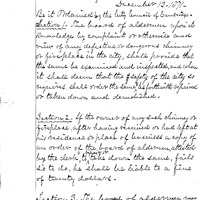 December 13, 187
Be it Ordained by the city council of Cambridge
Section 1. The board of aldermen upon its
knowledge by complaint or otherwise and
view of any defective or dangerous chimney
or fireplace in the city, shall provide that
the same be examined and inspected, and when
it shall deem that the safety of the city so
requires, shall order the same to be
taken down and demolished.
Section 2. If the owner of any such chimney or
fireplace, after having received or had left at
his residence or place of business a copy of
an order of the board of aldermen attested
by the clerk, to take down the same, fails
so to do, he shall be liable to a fine
of twenty dollars.
Section 3. The board of aldermen